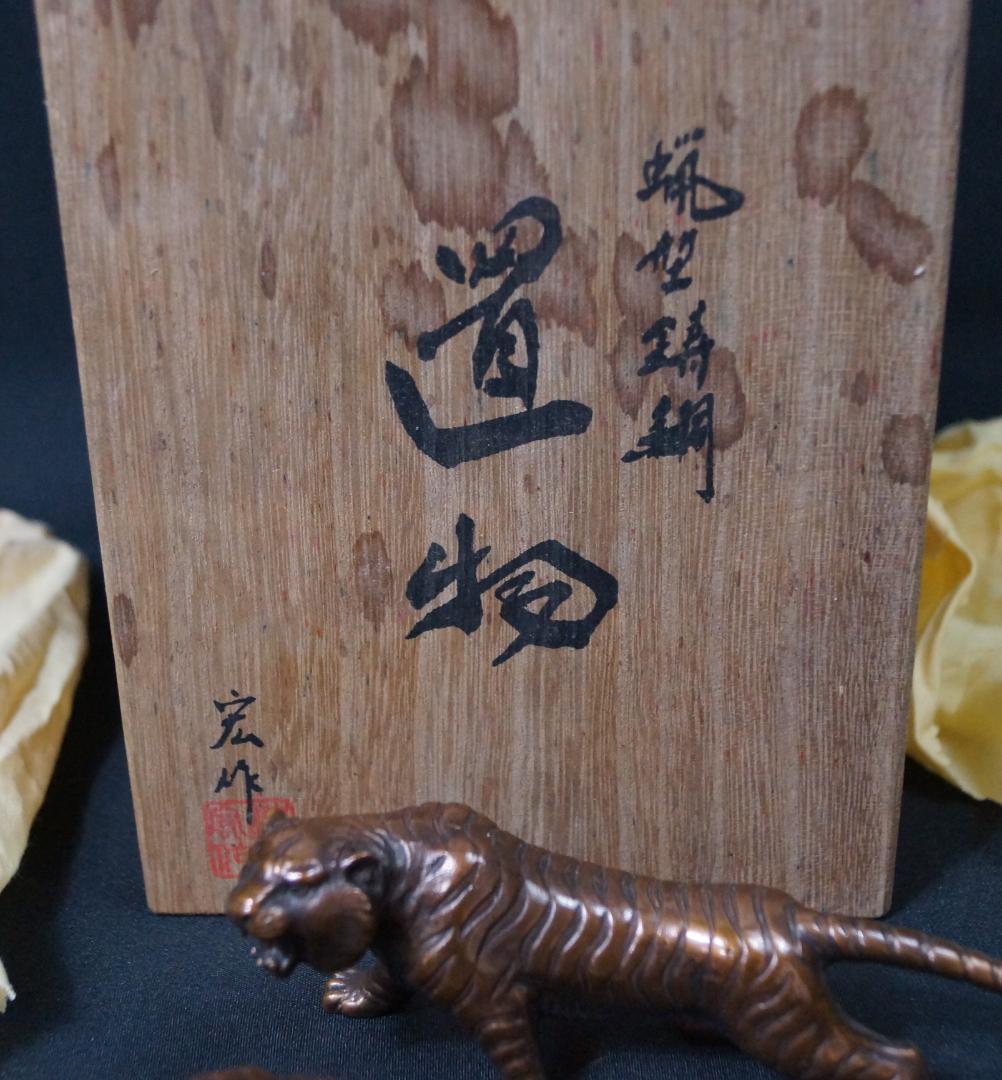 蝋型鋳銅
置物
宏作